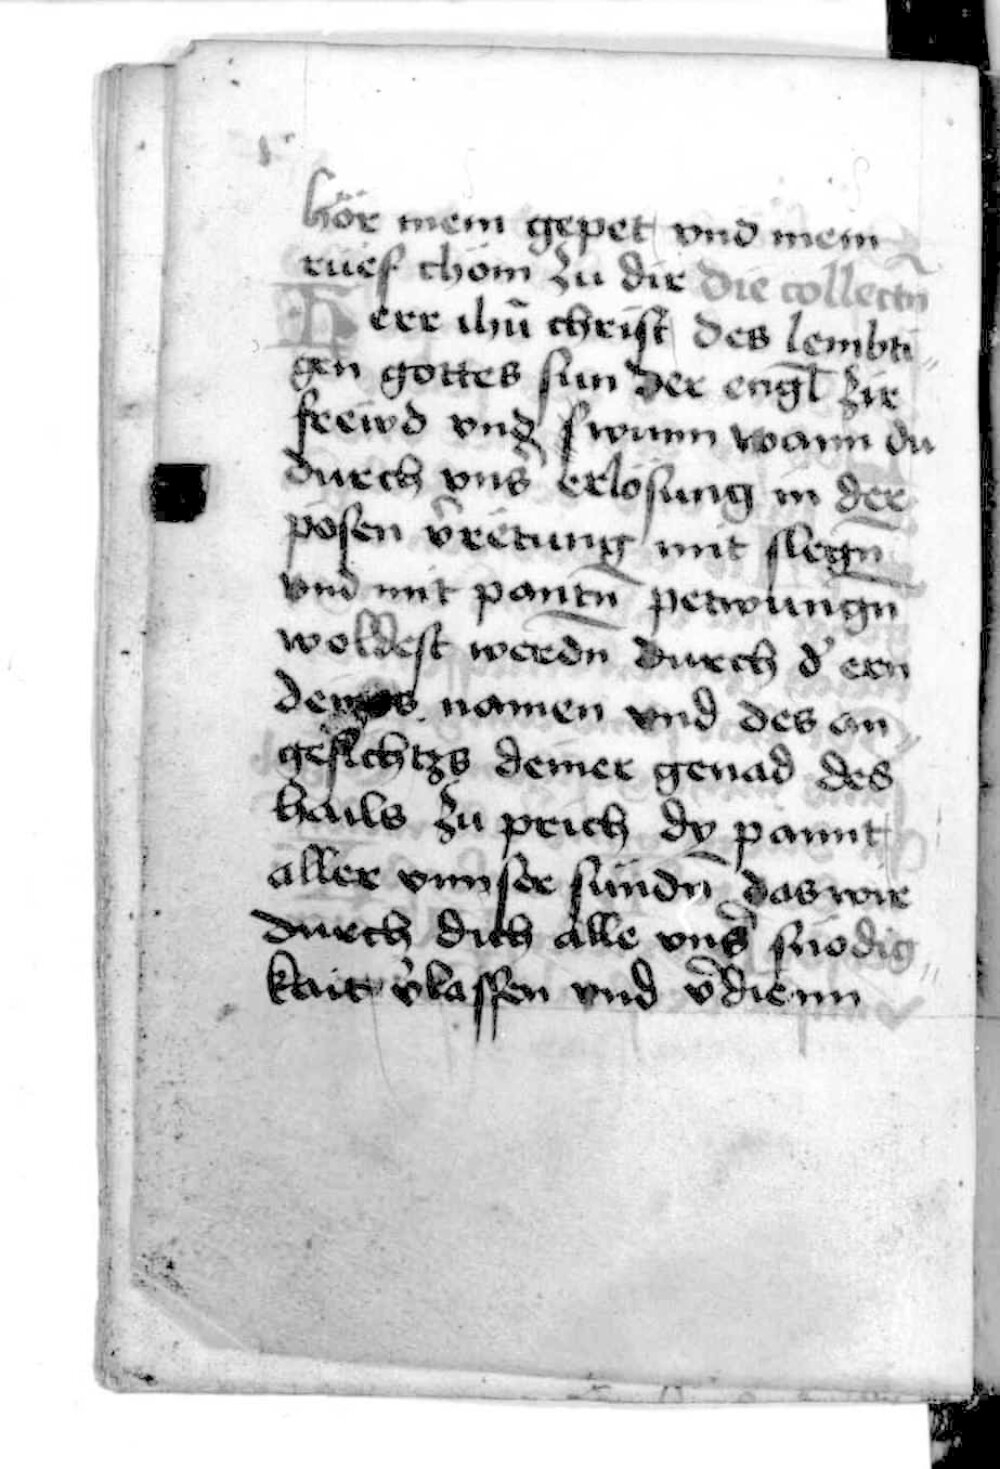 hör mein gepet vnd mein
rüef chöm zu dir Die collectn̄
Herr ihū christ des lembti
gen gottes sun der engl̄ zir
freiwd vnd wann du
durch vns erlösung in der
posen v̄retung mit slegn̄
vnd mit pantn̄ petwungn
woldest werdn durch d' ern
namen vnd des an
gesichtzs deiner genad des
hails zu prich dy pannt
aller vnnser sündn̄ das wir
durch dich alle vns' snodig
kait v̓lassen vnd v̄dienn